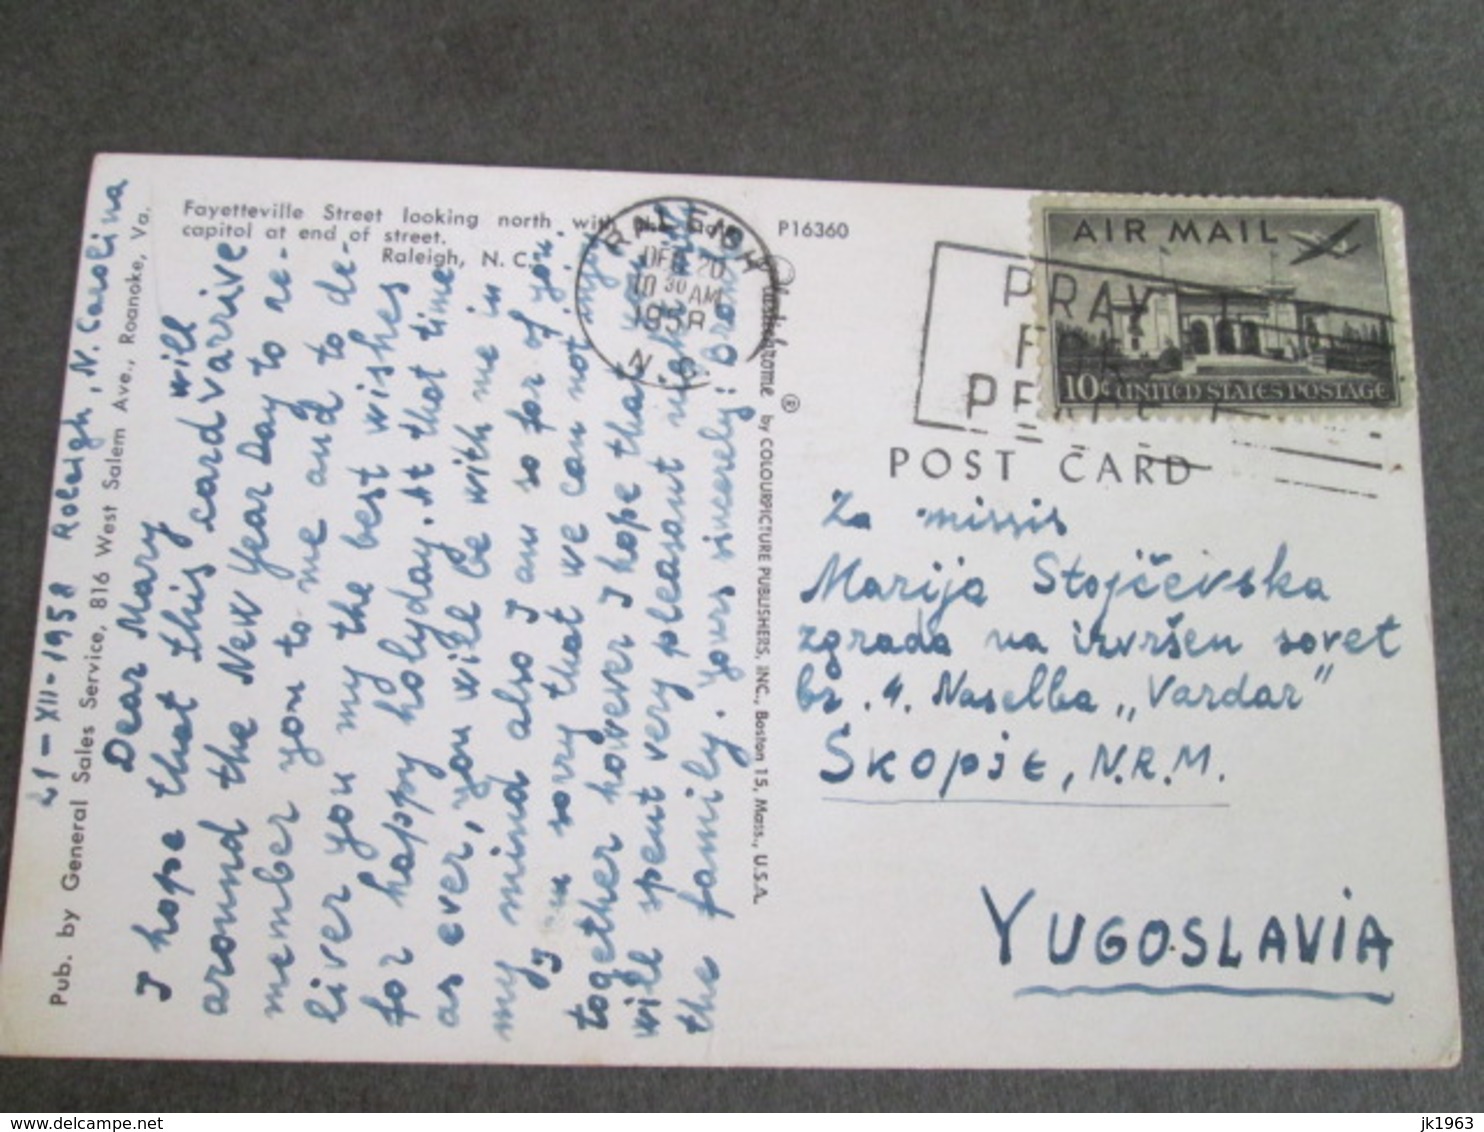 21-XII-1958 Roleigh, N. Carolina
Dear Mary
I hope that this card will arrive
around the New Year Day to re-
member you to me and to de-
liver you my the best wishes
for happy holyday. At that time
as ever, you will be with me in
my mind also I am so far of you.
I am sorry that we can not injoy
together however I hope that you
will spent very pleasant night with
the family. Yours sincerely: Branko
Pub. by General Sales Service, 816 West Salem Ave., Roanoke, Va.
Fayetteville Street looking north with the
capitol at end of street.
Raleigh, N. C.
P16360
RALEIGH
DEC 20
10 30 AM
1958
N.C.
Plastichrome ® by COLOURPICTURE PUBLISHERS, INC., Boston 15, Mass., U.S.A.
PRAY
FOR
PEACE
AIR MAIL
10¢ UNITED STATES POSTAGE
POST CARD
Za missis
Marija Stojčevska
zgrada na izvršen sovet
br. 4. Naselba „Vardar"
Skopje, N.R.M.
YUGOSLAVIA
delcampe.net
jk1963